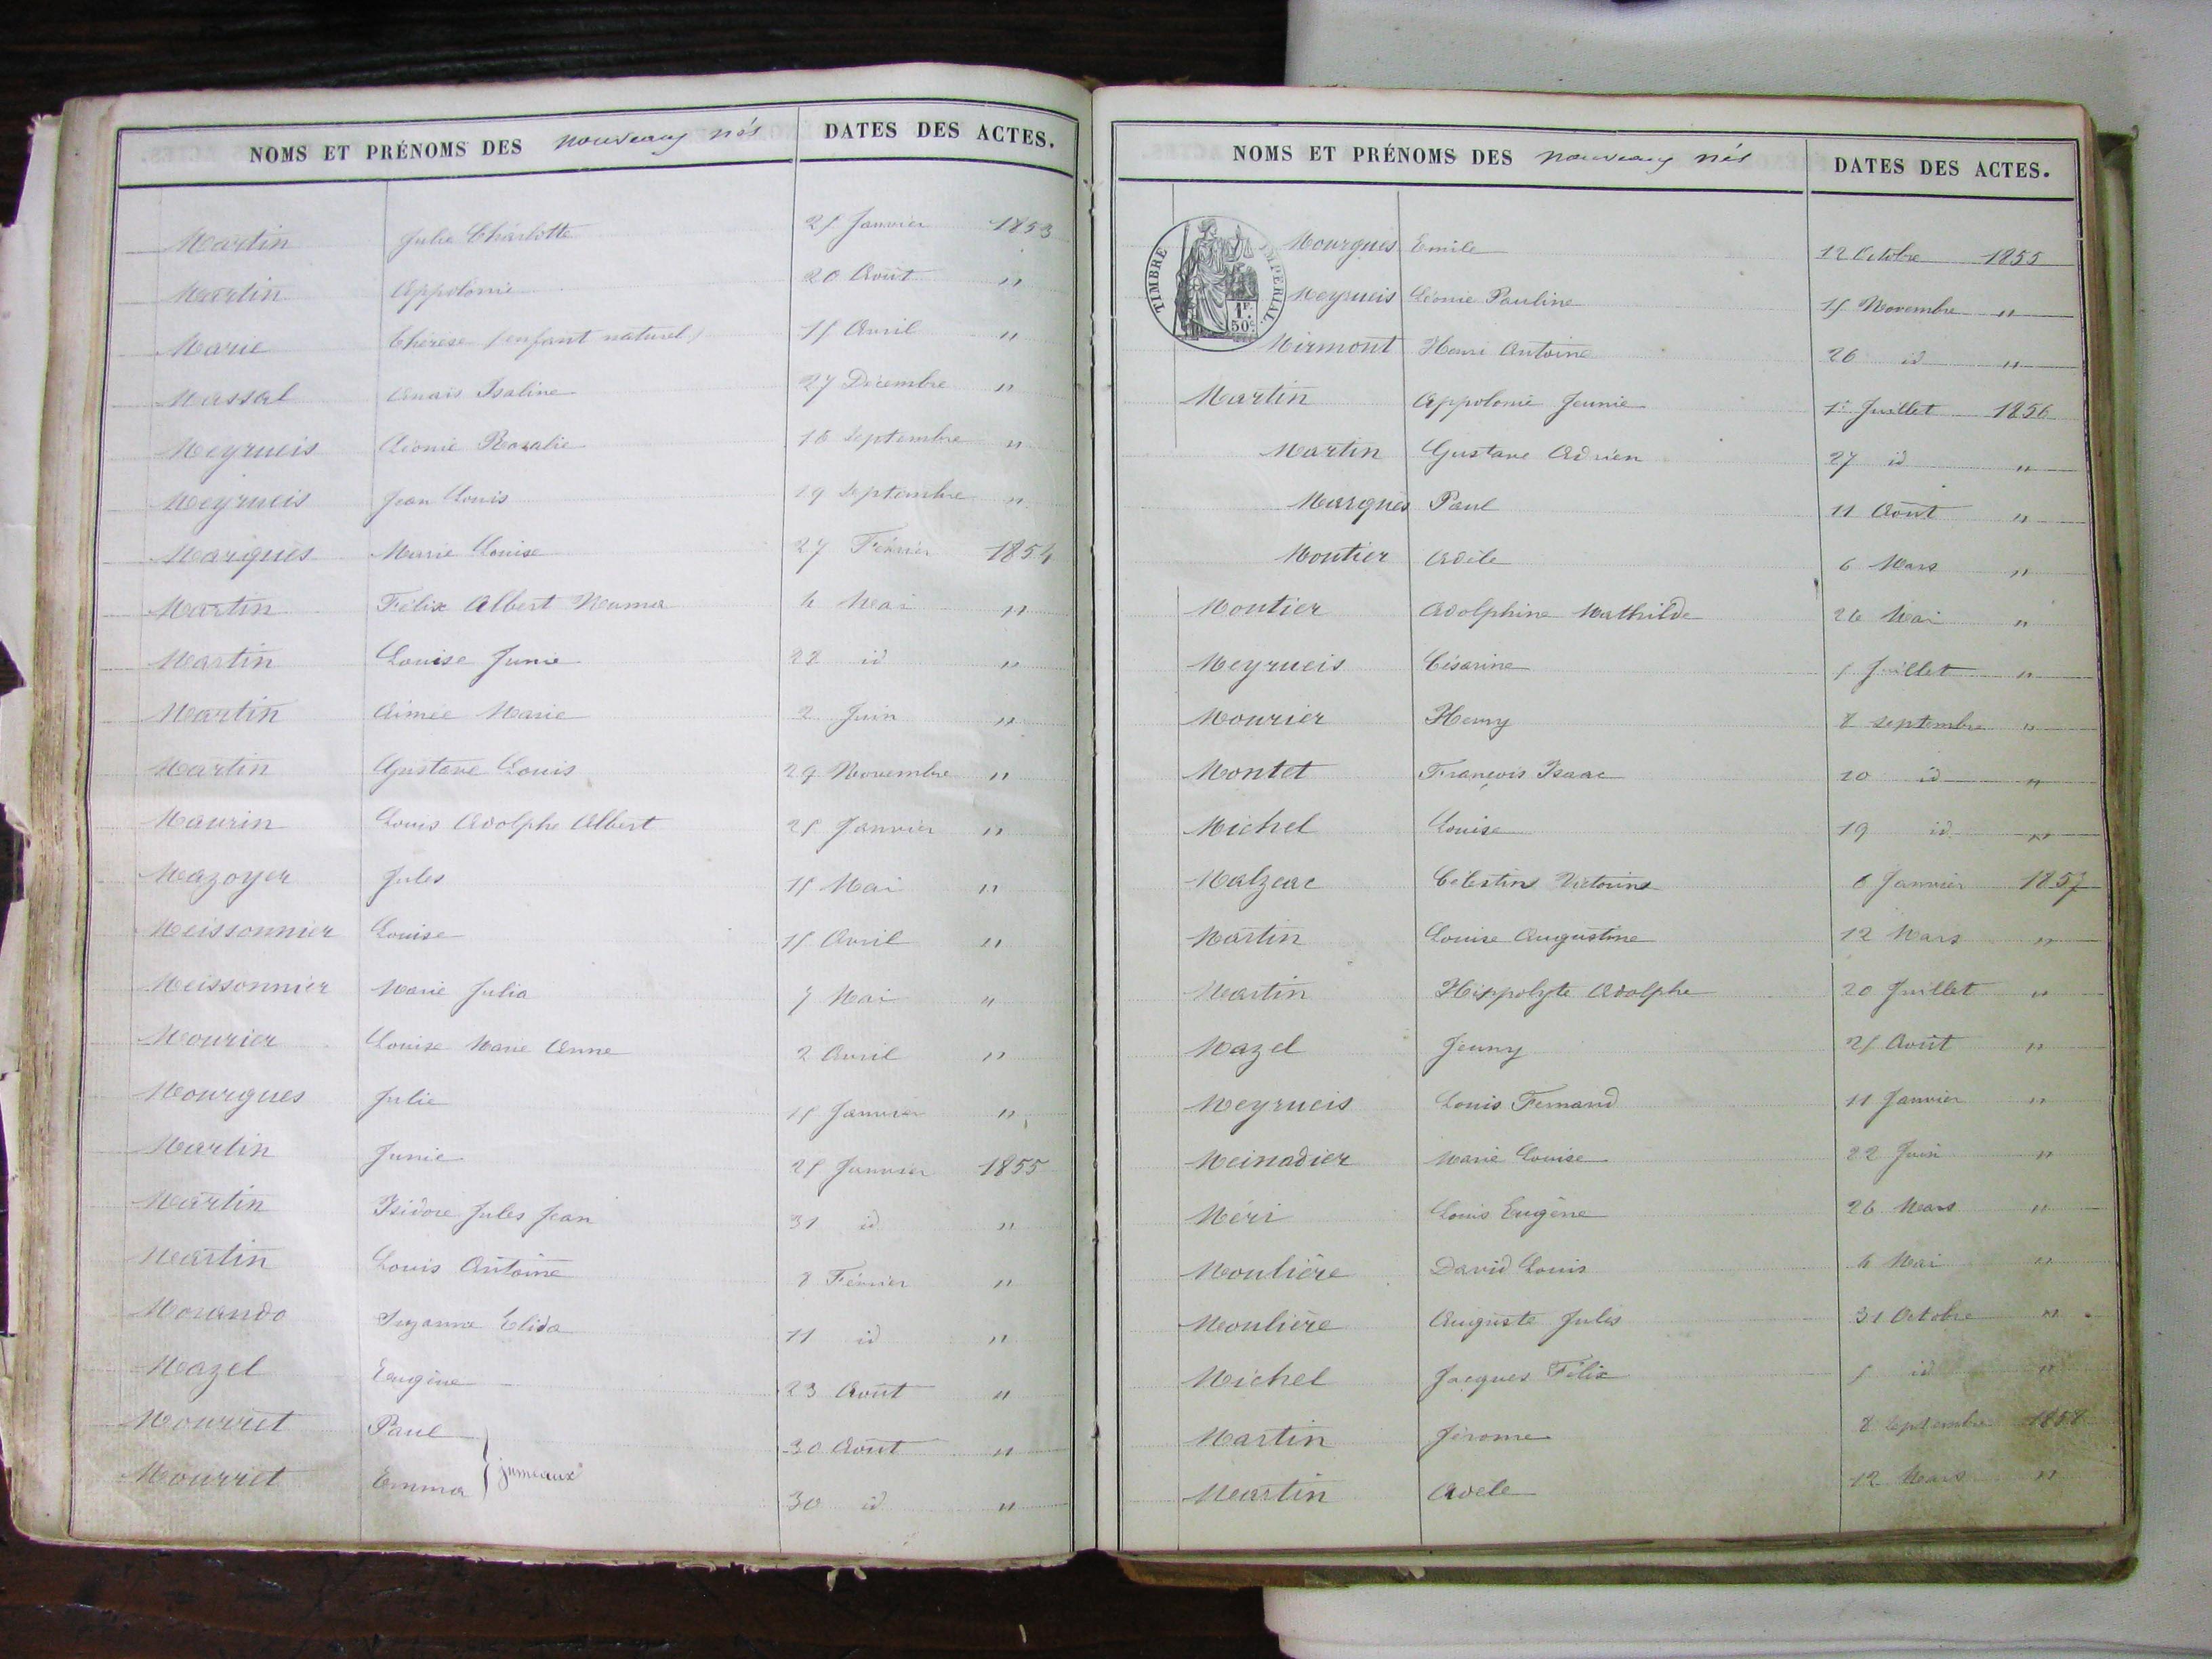 NOMS ET PRÉNOMS DES nouveaux nés DATES DES ACTES.
Martin Julie Charlotte 25 Janvier 1853
Martin Appolonie 20 Août "
Marie Thérèse (enfant naturel) 15 Avril "
Massal Anaïs Isaline 27 Décembre "
Meyrueis Léonie Rosalie 16 Septembre "
Meyrueis Jean Louis 19 Septembre "
Marquès Marie Louise 27 Février 1854
Martin Félix Albert Numa 4 Mai "
Martin Louise Junie 22 id "
Martin Aimée Marie 2 Juin "
Martin Gustave Louis 29 Novembre "
Maurin Louis Adolphe Albert 25 Janvier "
Mazoyer Jules 15 Mai "
Meissonnier Louise 15 Avril "
Meissonnier Marie Julia 7 Mai "
Mourier Louise Marie Anne 2 Avril "
Mourgues Julie 15 Janvier "
Martin Junie 25 Janvier 1855
Martin Isidore Jules Jean 31 id "
Martin Louis Antoine 8 Février "
Morando Suzanne Elida 11 id "
Mazel Eugène 23 Août "
Mourriet Paul 30 Août "
} jumeaux
Mourriet Emma 30 id "
NOMS ET PRÉNOMS DES nouveaux nés DATES DES ACTES.
TIMBRE IMPÉRIAL.
1F. 50c
Mourgues Emile 12 Octobre 1855
Meyrueis Léonie Pauline 15 Novembre "
Mirmont Henri Antoine 26 id "
Martin Appolonie Junie 1er Juillet 1856
Martin Gustave Adrien 27 id "
Marquès Paul 11 Août "
Moutier Adèle 6 Mars "
Moutier Adolphine Mathilde 26 Mai "
Meyrueis Césarine 5 Juillet "
Mourier Henry 8 Septembre "
Montet François Isaac 10 id "
Michel Louise 19 id "
Malzeac Célestine Victorine 6 Janvier 1857
Martin Louise Augustine 12 Mars "
Martin Hippolyte Adolphe 20 Juillet "
Mazel Jenny 25 Août "
Meyrueis Louis Fernand 11 Janvier "
Meinadier Marie Louise 22 Juin "
Méri Louis Eugène 26 Mars "
Moulière David Louis 4 Mai "
Moulière Auguste Jules 31 Octobre "
Michel Jacques Félix 5 id "
Martin Jérome 8 Septembre 1858
Martin Adele 12 Mars "